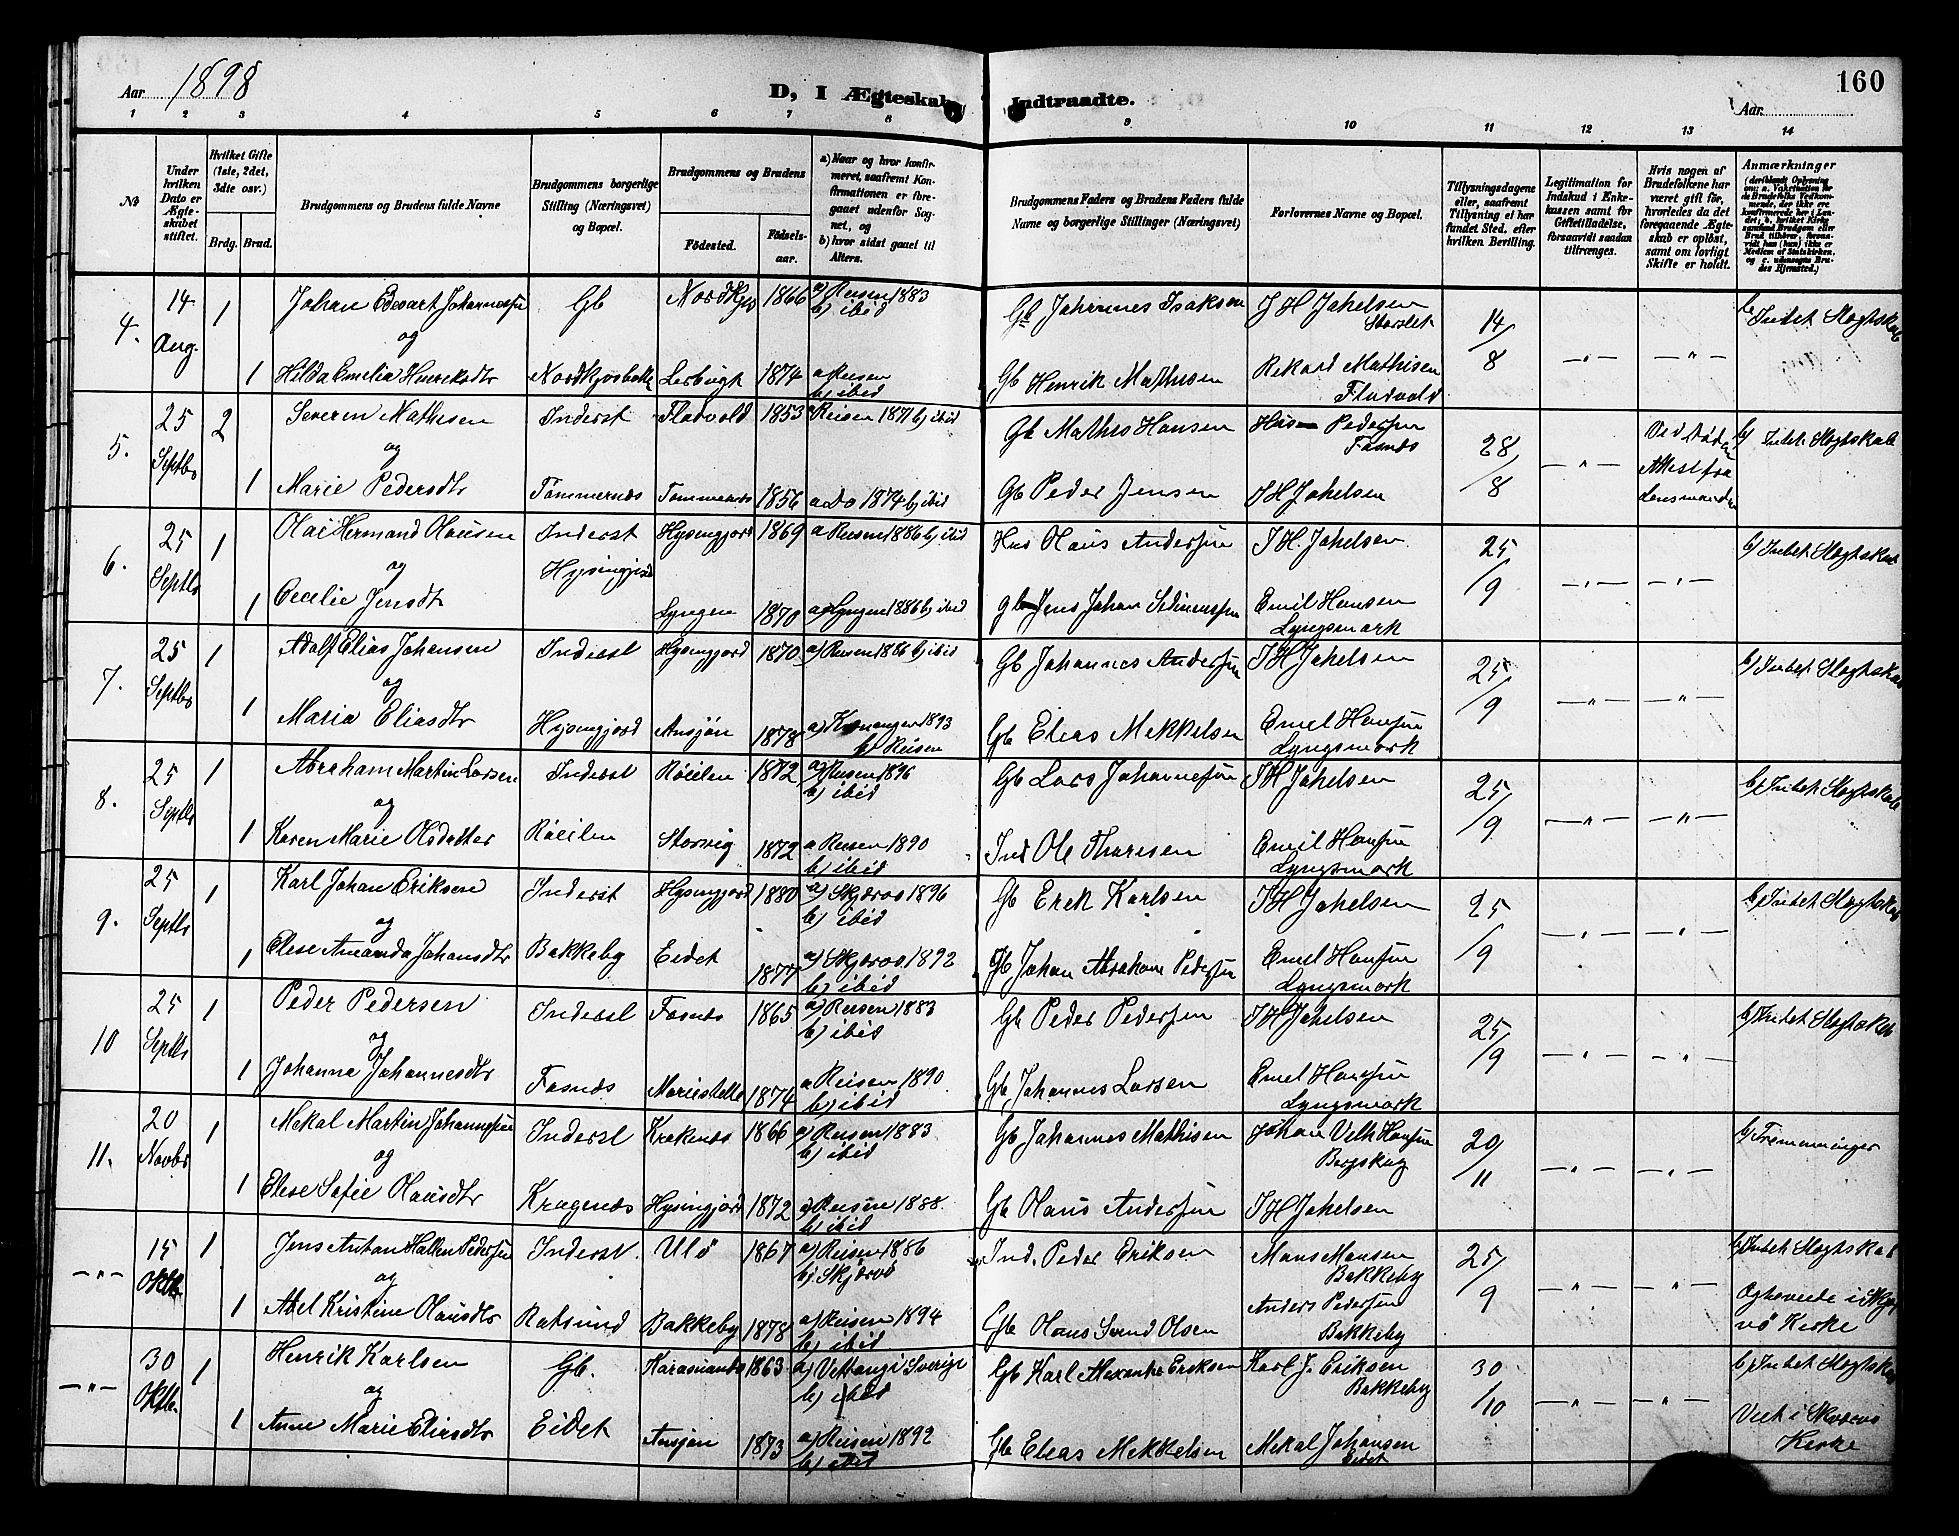 160
Aar 1898 D, I Ægteskab Indtraadte. Aar
1 2 3 4 5 6 7 8 9 10 11 12 13 14
No
Under hvilken Dato er Ægteskabet stiftet.
Hvilket Gifte (1ste, 2det, 3die osv.)
Brdg. Brud.
Brudgommens og Brudens fulde Navne
Brudgommens borgerlige Stilling (Næringsvei) og Bopæl.
Brudgommens og Brudens
Fødested. Fødsels-aar.
a) Naar og hvor konfirmeret, saafremt Konfirmationen er foregaaet udenfor Sognet, og
b) hvor sidst gaaet til Alters.
Brudgommens Faders og Brudens Faders fulde Navne og borgerlige Stillinger (Næringsvei)
Forlovernes Navne og Bopæl.
Tillysningsdagene eller, saafremt Tillysning ei har fundet Sted, efter hvilken Bevilling.
Legitimation for Indskud i Enkekassen samt for Giftetilladelse, forsaavidt saadan tiltrænges.
Hvis nogen af Brudefolkene har været gift før, hvorledes da det foregaaende Ægteskab er opløst, samt om lovligt Skifte er holdt.
Anmærkninger
4. 14 Aug. 1 Johan Edevart Johannessen Gb 1866 a) Reisen 1883 b) ibid Gb Johannes Isaksen J H Jakelsen Storslet 14/8 b) Intet Slegtskab
og
1 Hilda Emelia Henriksdtr Nordkjosbotn 1874 a Reisen b) ibid Gb Henrik Mathisen Rikard Mathisen Fladvold
5. 25 Septbr 2 Severin Mathesen Inderst Fladvold 1853 Reisen 1871 b) ibid Gb Mathis Hansen Pedersen Fosnes 28/8 Ved Døden Attest fra Lensmanden b) Intet Slegtskab
og
1 Marie Pedersdtr Tømmernes Tømmernes 1856 a Do 1874 b) ibid Gb Peder Jensen J H Jakelsen
6. 25 Septbr 1 Olai Hermand Olausen Inderst Hysingjord 1869 a Reisen 1886 b) ibid Olaus Andersen J H. Jakelsen 25/9 b) Intet Slegtskab
og Hysingjord
1 Cecelie Jensdtr Lyngen 1870 a) Lyngen 1886 b) ibid Gb Jens Johan Emil Hansen Lyngsmark
7. 25 Septbr 1 Adolf Elias Johansen Inderst Hysingjord 1870 a) Reisen 1886 b) ibid Gb Johannes Andersen J H Jakelsen 25/9 b) Intet Slegtskab
og
1 Maria Eliasdtr Hysingjord Ansjøn 1878 a) 1893 b) Reisen Gb Elias Mekkelsen Emel Hansen Lyngsmark
8. 25 Septbr 1 Abraham Martin Larsen Inderst Røeilen 1872 a) Reisen 1896 b) ibid Gb Lars Johannesen J H Jakelsen 25/9 b) Intet Slegtskab
og
1 Karen Marie Olsdatter Røeilen Storvig 1872 a Reisen 1890 b) ibid Ind Ole Thoresen Emil Hansen Lyngsmark
9. 25 Septbr 1 Karl Johan Eriksen Inderst Hysingjord 1880 a) Skjærvø 1896 b) ibid Gb Erek Karlsen J H Jakelsen 25/9 b) Intet Slegtskab
og
1 Elese Amanda Johansdtr Bakkeby Eidet 1877 a) Skjærvø 1892 b) ibid Gb Johan Abraham Pedersen Emel Hansen Lyngsmark
10 25 Septbr 1 Peder Pedersen Inderst Fosnes 1865 a) Reisen 1883 b) ibid Gb Peder Pedersen J H Jakelsen 25/9 b) Intet Slegtskab
og
1 Johanna Johannesdtr Fosnes 1874 a Reisen 1890 b) ibid Gb Johannes Larsen Emel Hansen Lyngsmark
11. 20 Novbr 1 Mekal Martin Johannesen Inderst Krakenes 1866 a) Reisen 1883 b) ibid Gb Johannes Mathisen Johan Velh Hansen Bergskag 20/11 b) Fremenninger
og
1 Elese Sofie Olausdtr Kragenæs Hysingjord 1872 a) Reisen 1888. b) ibid Gb Olaus Andersen J H Jakelsen
—"— 15 Oktbr. 1 Jens Antan Pedersen Inderst. Ulø 1867 a) Reisen 1886 b) Skjærvø Ind. Peder Eriksen Mons Monsen Bakkeby 25/9 b) Intet Slegtskab
og
1 Abel Kristine Olausdtr Rotsund Bakkeby 1878 a) Reisen 1894 b) ibid Gb Olaus Svend Olsen Anders Pedersen Bakkeby i Skjærvø Kirke
—"— 30 Oktbr. 1 Henrik Karlsen Gb. 1863 a) i Sverige b) ibid Gb Karl Alexander Eriksen Karl J. Eriksen Bakkeby 30/10 b) Intet Slegtskab
og
1 Anne Marie Eliasdtr Eidet Ansjøn 1873 a) Reisen 1892 b) ibid Gb Eleas Mekkelsen Mekal Johansen Eidet Viet i Skjærvø Kirke